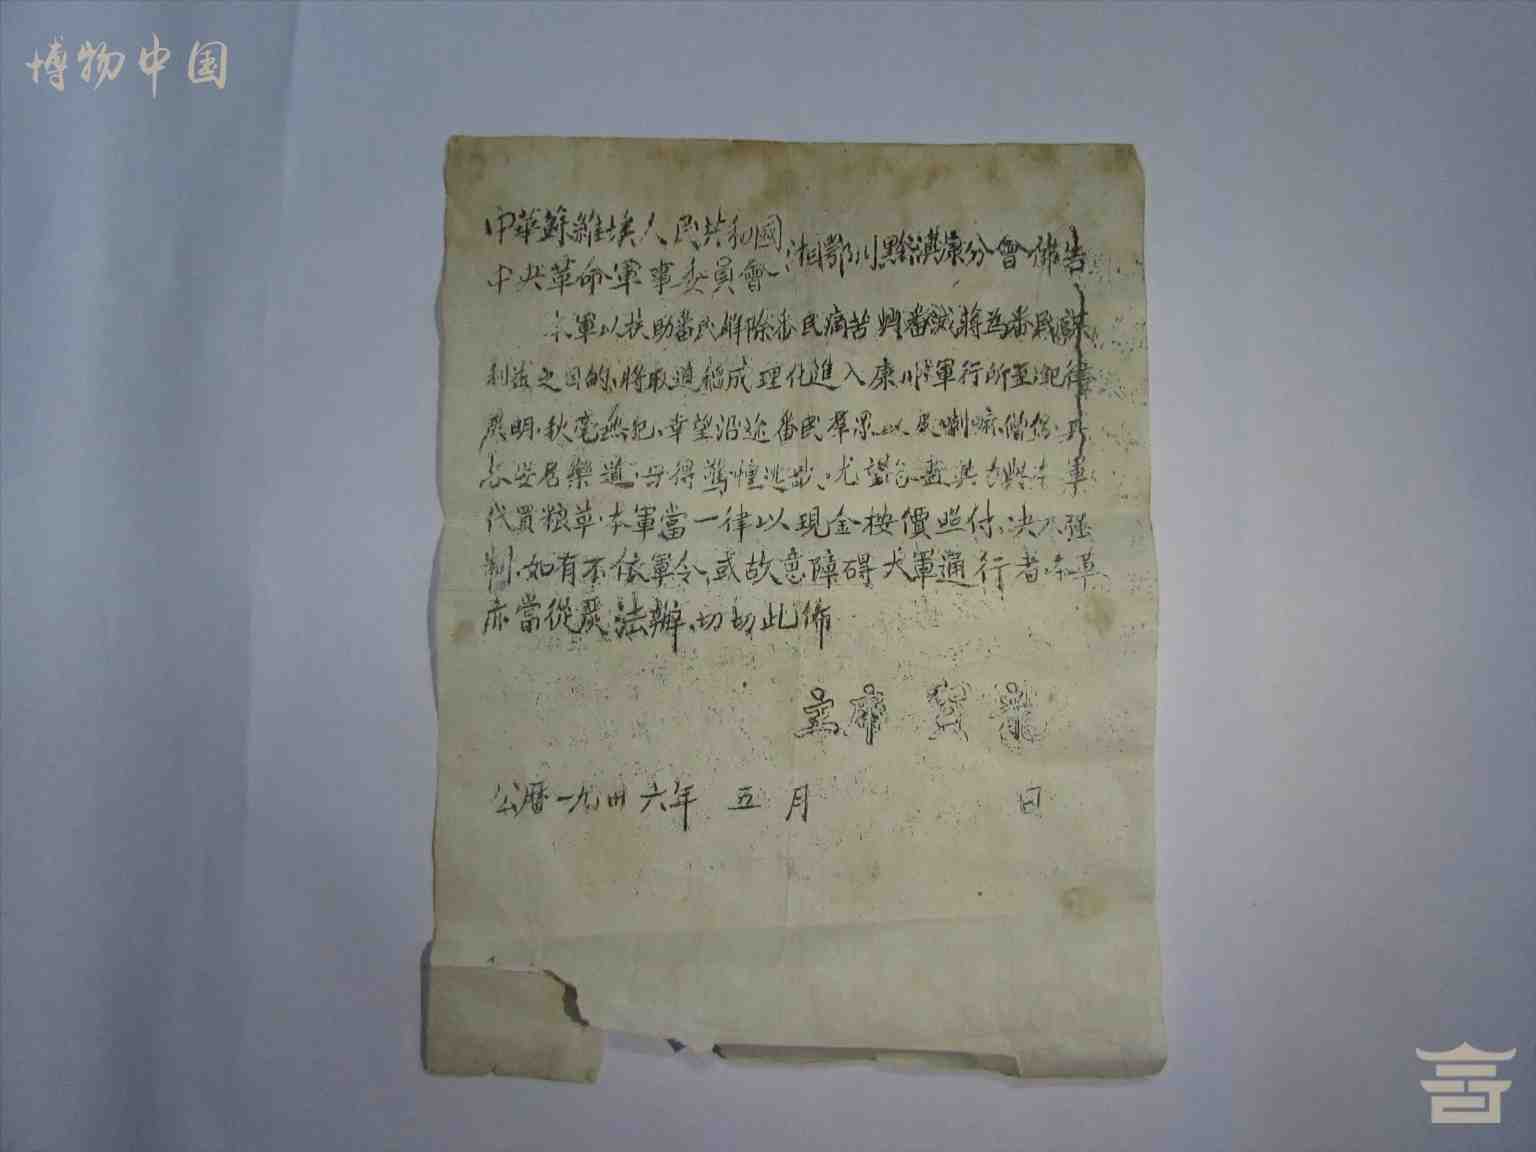 博物中国
中華蘇維埃人民共和國
中央革命軍事委員會
湘鄂川黔滇康分會佈告
本軍以扶助番民解除番民痛苦興番滅蔣為番民謀
利益之目的、將取道稻成理化進入康川、軍行所至、紀律
嚴明、秋毫無犯、幸望沿途番民羣眾以及喇嘛僧侶、其
各安居樂道、毋得驚惶逃散、尤望各盡其力與本軍
代買粮草、本軍當一律以現金按價照付、决不强
制、如有不依軍令、或故意障碍大軍通行者、本軍
亦當從嚴法辦、切切此佈
主席 賀龍
公曆一九卅六年 五 月 日